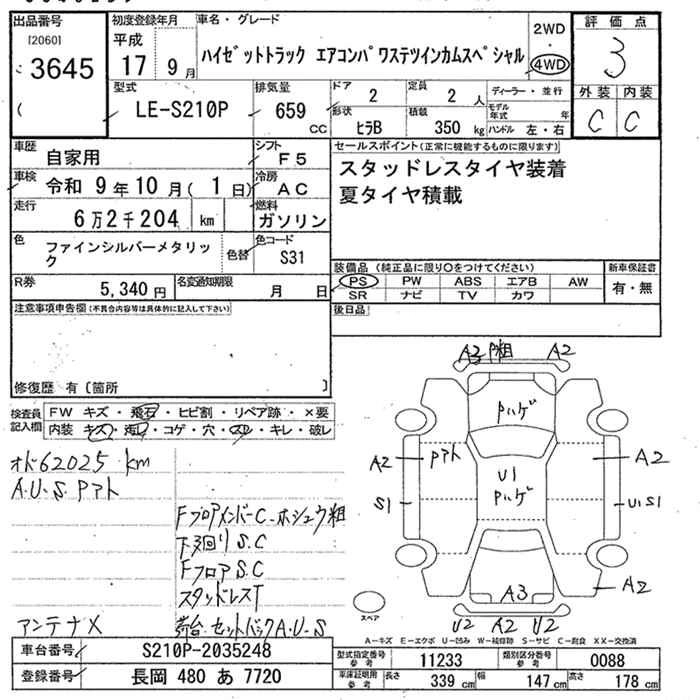 出品番号
[2060]
3645
(
初度登録年月
平成
17年9月
車名・グレード
ハイゼットトラック エアコンパワステツインカムスペシャル
2WD
4WD
評価点
3
外装 内装
C C
型式
LE-S210P
排気量
659
CC
ドア
2
定員
2人
形状
ヒラB
積載
350 kg
ディーラー・並行
モデル年式 年
ハンドル 左・右
車歴
自家用
シフト
F5
車検
令和 9年10月(1日)
冷房
AC
走行
6万2千204 km
燃料
ガソリン
色
ファインシルバーメタリック
色替
色コード
S31
R券
5,340円
名変通知期限
月 日
セールスポイント(正常に機能するものに限ります)
スタッドレスタイヤ装着
夏タイヤ積載
装備品(純正品に限り○をつけてください)
PS PW ABS エアB AW
SR ナビ TV カワ
新車保証書
有・無
後日品
注意事項申告欄(不具合内容等は具体的に記入して下さい)
修復歴 有〔箇所 〕
検査員記入欄
FW キズ・飛石・ヒビ割・リペア跡・×要
内装 キズ・汚れ・コゲ・穴・スレ・キレ・破レ
オド62025 km
A.U.S Pアト
FフロアメンバーC-ホシュウ粗
下廻りS.C
FフロアS.C
スタッドレスT
アンテナX
荷台.セットバックA.U.S
A3 P粗 A2
Pハゲ
A2 Pアト A2
U1
Pハゲ
S1 U1S1
A3 A2
U2 A2 U2
スペア
A-キズ E-エクボ U-凹み W-補修跡 S-サビ C-腐食 XX-交換済
車台番号
S210P-2035248
登録番号
長岡 480 あ 7720
型式指定番号 参考
11233
類別区分番号 参考
0088
車庫証明用 参考
長さ 339 cm
幅 147 cm
高さ 178 cm